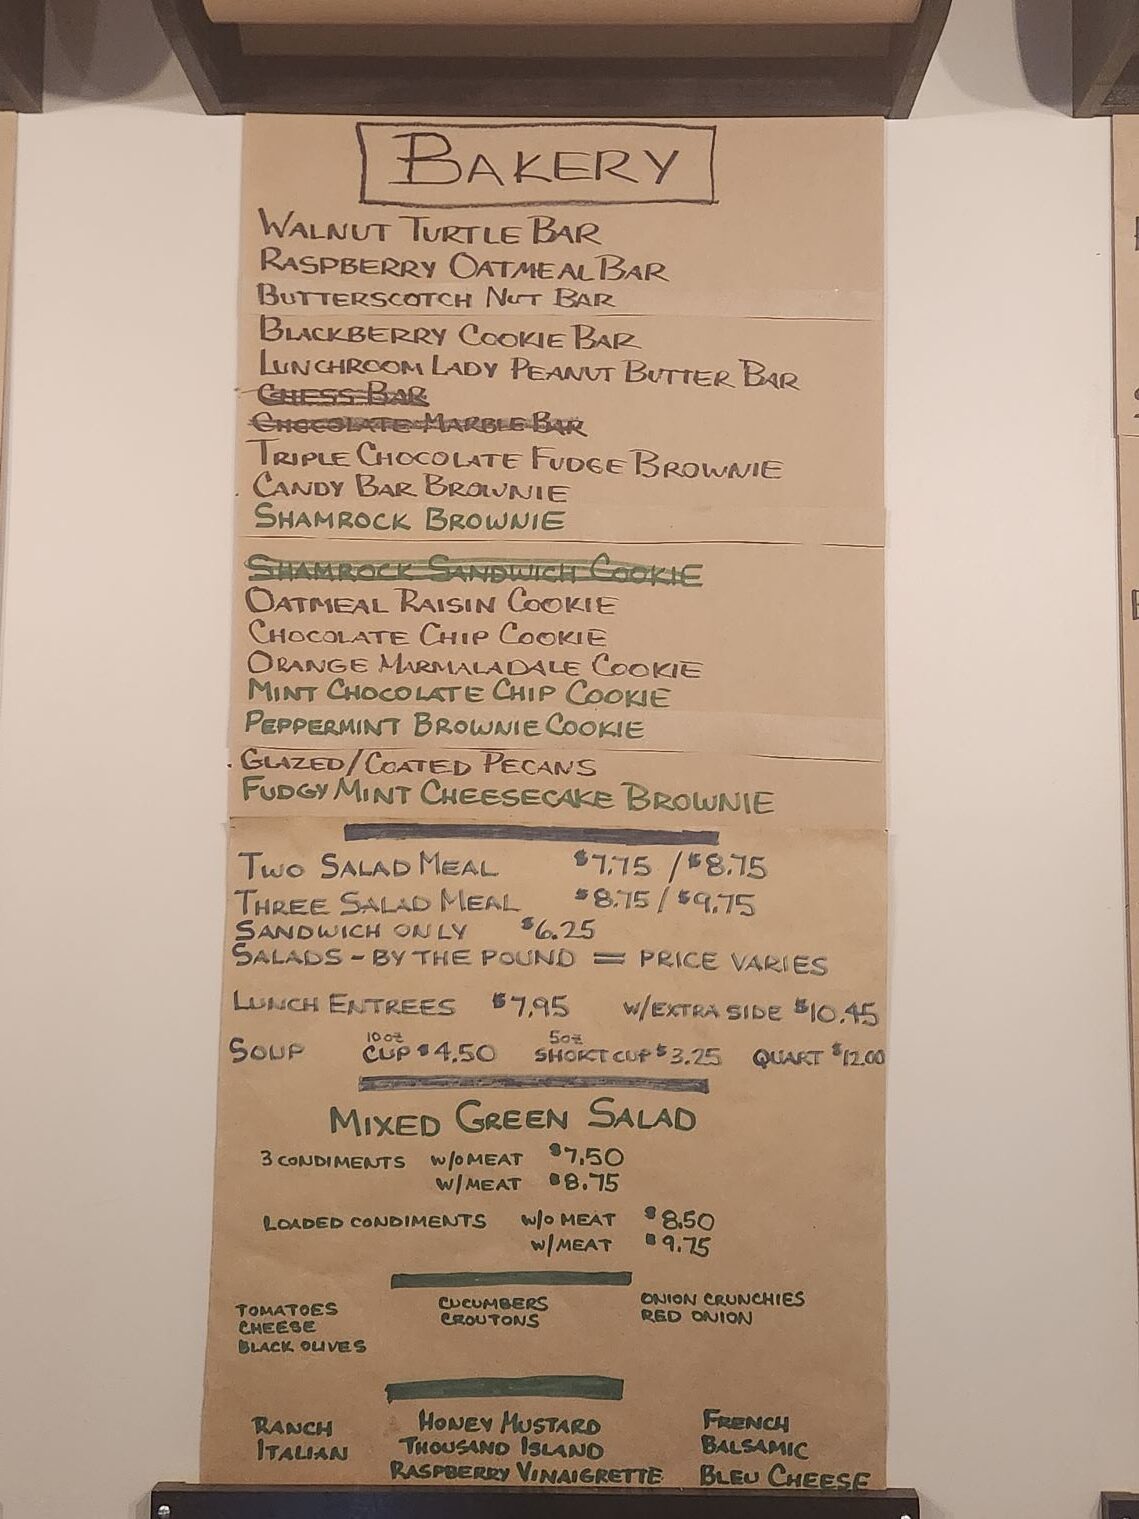 BAKERY
WALNUT TURTLE BAR
RASPBERRY OATMEAL BAR
BUTTERSCOTCH NUT BAR
BLACKBERRY COOKIE BAR
LUNCHROOM LADY PEANUT BUTTER BAR
CHESS BAR
CHOCOLATE MARBLE BAR
TRIPLE CHOCOLATE FUDGE BROWNIE
CANDY BAR BROWNIE
SHAMROCK BROWNIE
SHAMROCK SANDWICH COOKIE
OATMEAL RAISIN COOKIE
CHOCOLATE CHIP COOKIE
ORANGE MARMALADALE COOKIE
MINT CHOCOLATE CHIP COOKIE
PEPPERMINT BROWNIE COOKIE
GLAZED/COATED PECANS
FUDGY MINT CHEESECAKE BROWNIE
TWO SALAD MEAL $7.75 / $8.75
THREE SALAD MEAL $8.75 / $9.75
SANDWICH ONLY $6.25
SALADS - BY THE POUND = PRICE VARIES
LUNCH ENTREES $7.95 W/EXTRA SIDE $10.45
SOUP 10oz CUP $4.50 5oz SHORT CUP $3.25 QUART $12.00
MIXED GREEN SALAD
3 CONDIMENTS W/O MEAT $7.50
W/MEAT $8.75
LOADED CONDIMENTS W/O MEAT $8.50
W/MEAT $9.75
TOMATOES CUCUMBERS ONION CRUNCHIES
CHEESE CROUTONS RED ONION
BLACK OLIVES
RANCH HONEY MUSTARD FRENCH
ITALIAN THOUSAND ISLAND BALSAMIC
RASPBERRY VINAIGRETTE BLEU CHEESE